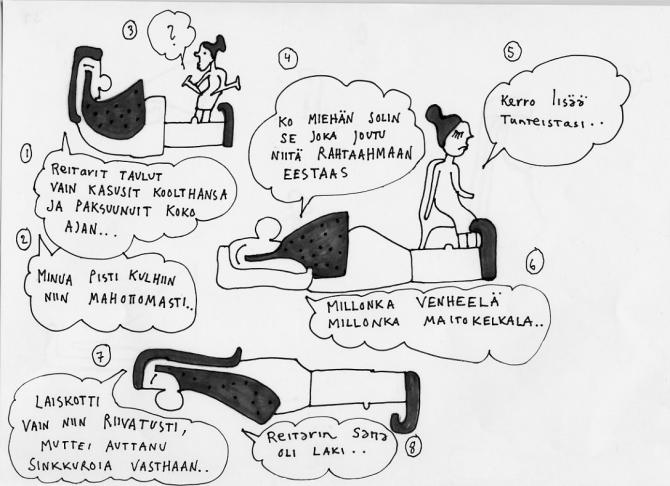 1
REITARIT TAULUT
VAIN KASUSIT KOOLTHANSA
JA PAKSUUNUIT KOKO
AJAN...
2
MINUA PISTI KULHIIN
NIIN MAHOTTOMASTI..
3
?
4
KO MIEHÄN SOLIN
SE JOKA JOUTU
NIITÄ RAHTAAHMAAN
EESTAAS
5
Kerro lisää
Tunteistasi..
6
MILLONKA VENHEELÄ
MILLONKA MAITOKELKALA..
7
LAISKOTTI
VAIN NIIN RIIVATUSTI,
MUTTEI AUTTANU
SINKKUROIA VASTHAAN..
8
REITARIN SANA
OLI LAKI..